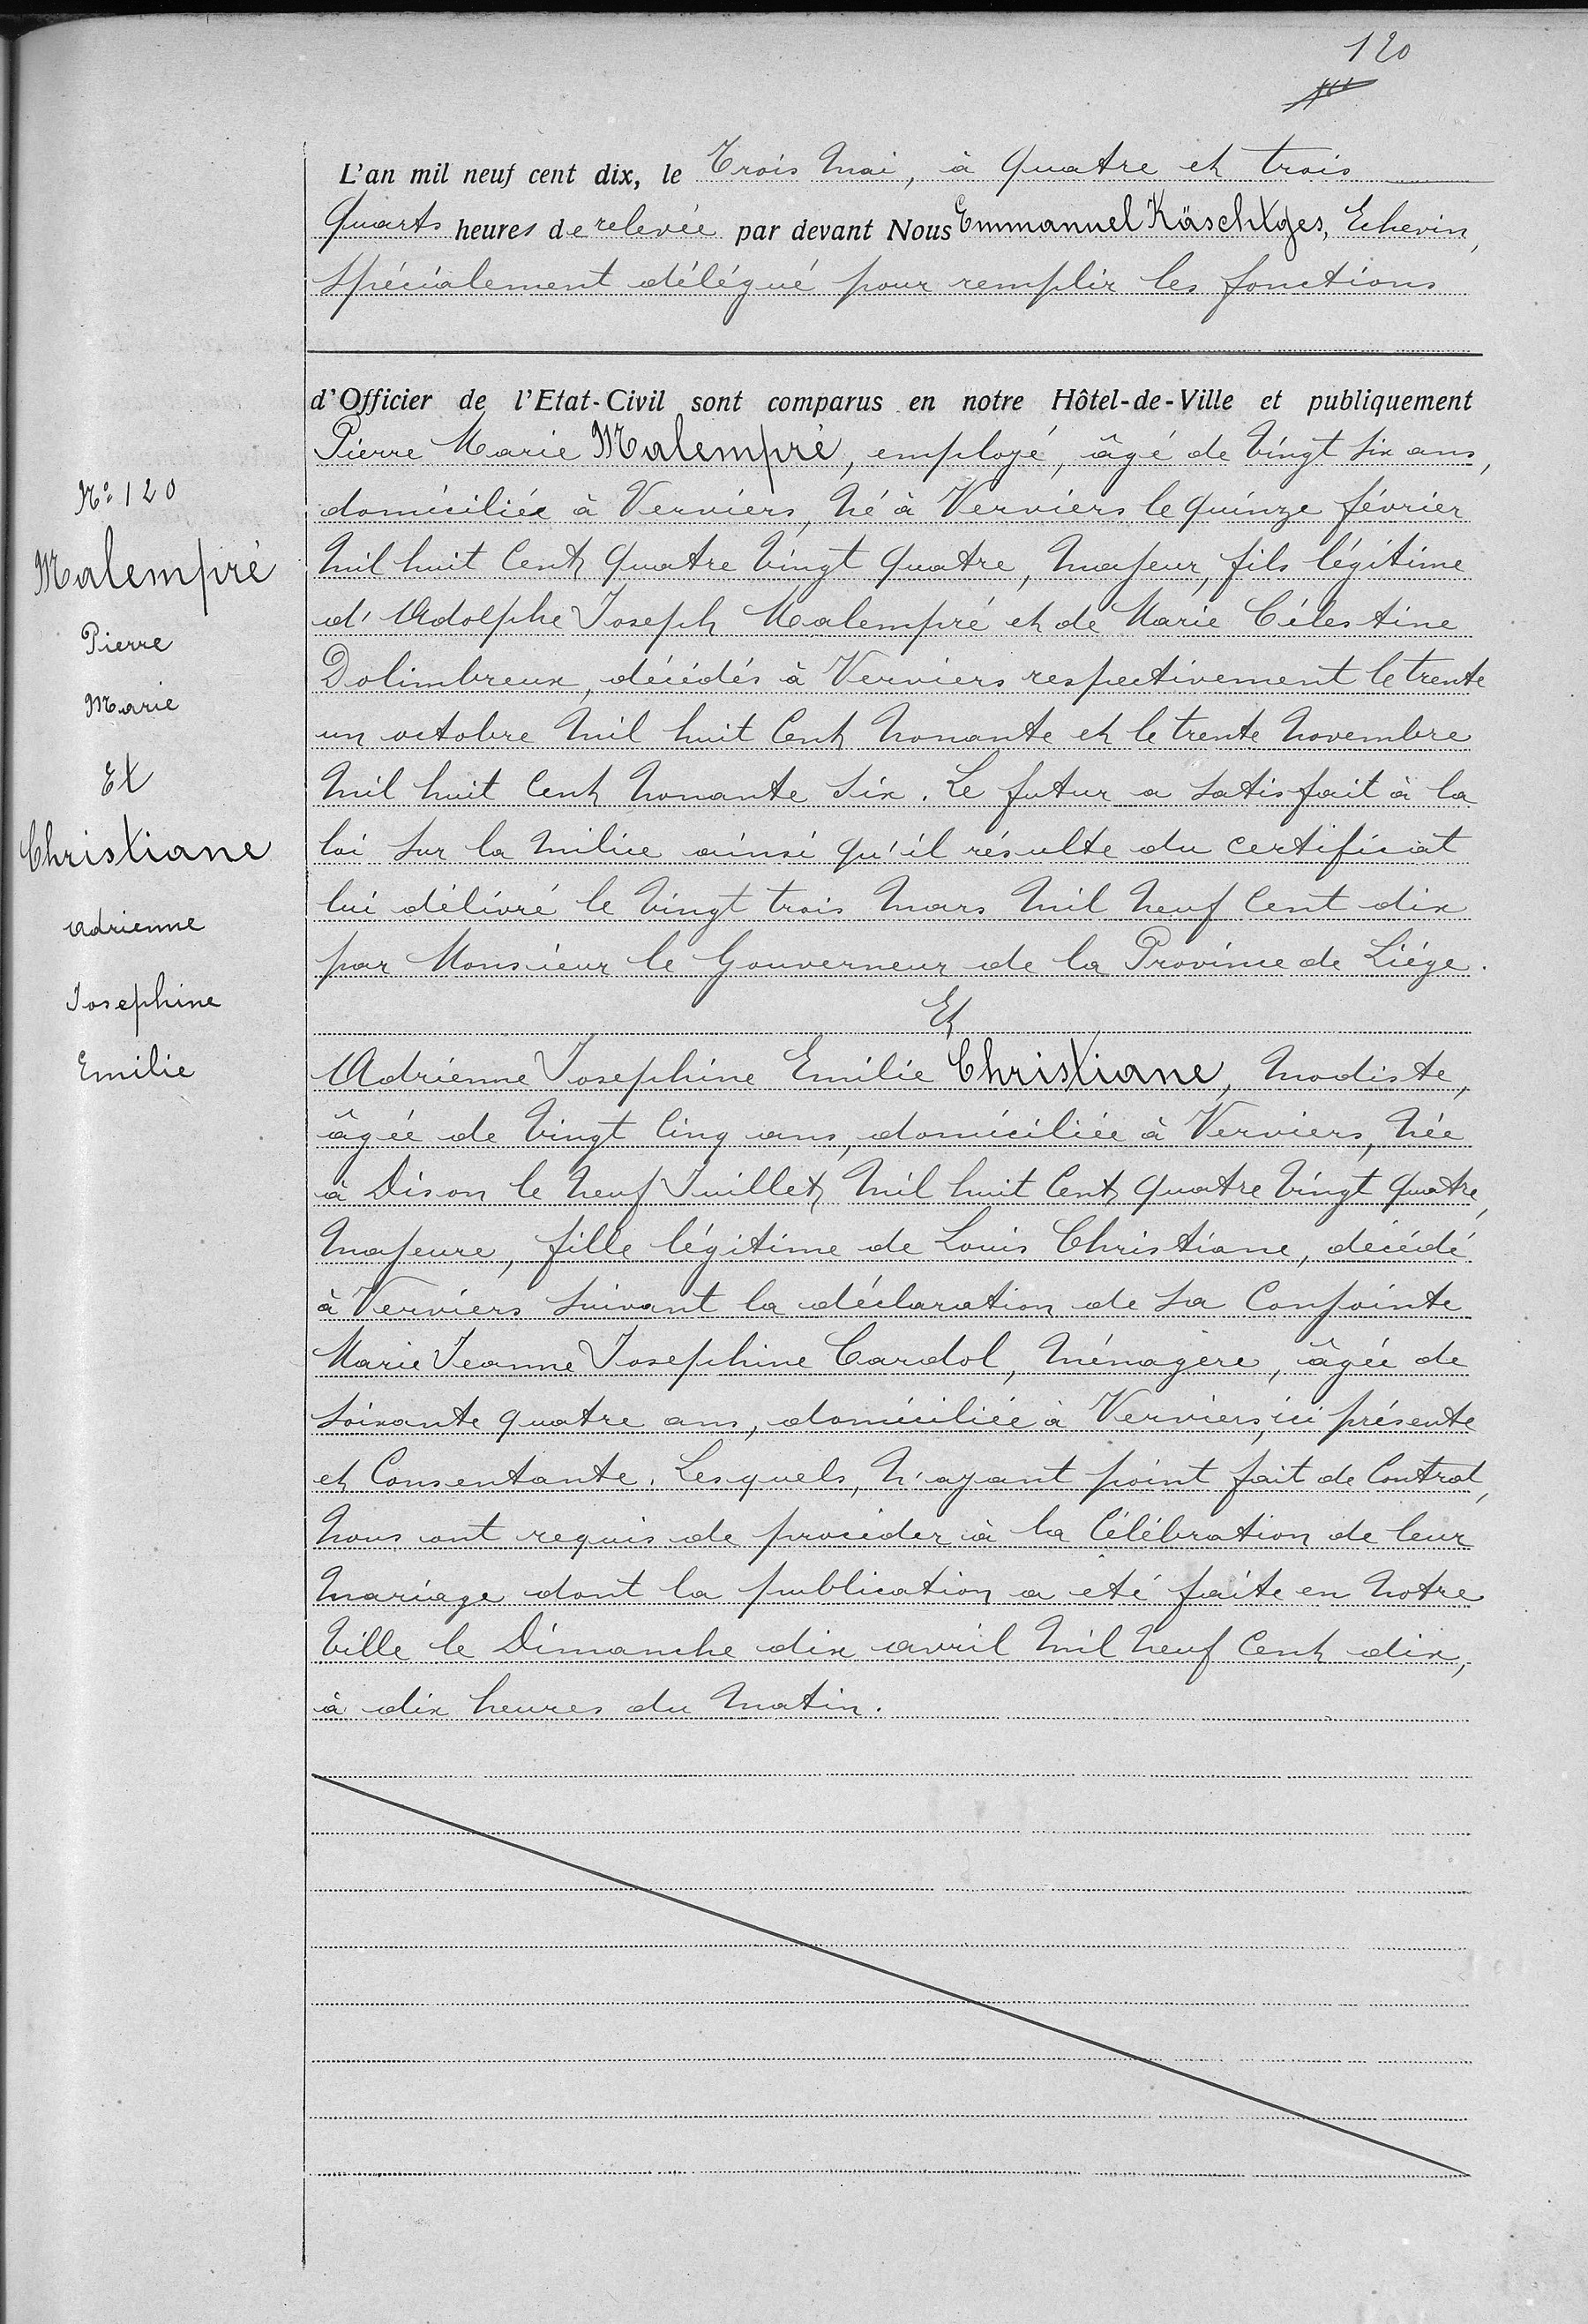 120
L'an mil neuf cent dix, le Trois Mai, à quatre et trois
quarts heures de relevée par devant Nous Emmanuel Käschtges, Echevin,
spécialement délégué pour remplir les fonctions
d'Officier de l'Etat-Civil sont comparus en notre Hôtel-de-Ville et publiquement
Pierre Marie Malempré, employé, âgé de vingt six ans,
domicilié à Verviers, né à Verviers le quinze février
mil huit cent quatre vingt quatre, majeur, fils légitime
d'Adolphe Joseph Malempré et de Marie Célestine
Dolimbreux, décédés à Verviers respectivement le trente
un octobre mil huit cent nonante et le trente novembre
mil huit cent nonante six. Le futur a satisfait à la
loi sur la milice ainsi qu'il résulte du certificat
lui délivré le vingt trois mars mil neuf cent dix
par Monsieur le Gouverneur de la Province de Liége.
Et
Adrienne Josephine Emilie Christiane, modiste,
âgée de vingt cinq ans, domiciliée à Verviers, née
à Dison le neuf Juillet mil huit cent quatre vingt quatre,
majeure, fille légitime de Louis Christiane, décédé
à Verviers suivant la déclaration de sa conjointe
Marie Jeanne Josephine Cardol, ménagère, âgée de
soixante quatre ans, domiciliée à Verviers, ici présente
et consentante. Lesquels, n'ayant point fait de contrat,
nous ont requis de procéder à la célébration de leur
mariage dont la publication a été faite en notre
ville le Dimanche dix avril mil neuf cent dix,
à dix heures du matin.
N° 120
Malempré
Pierre
Marie
Et
Christiane
Adrienne
Josephine
Emilie